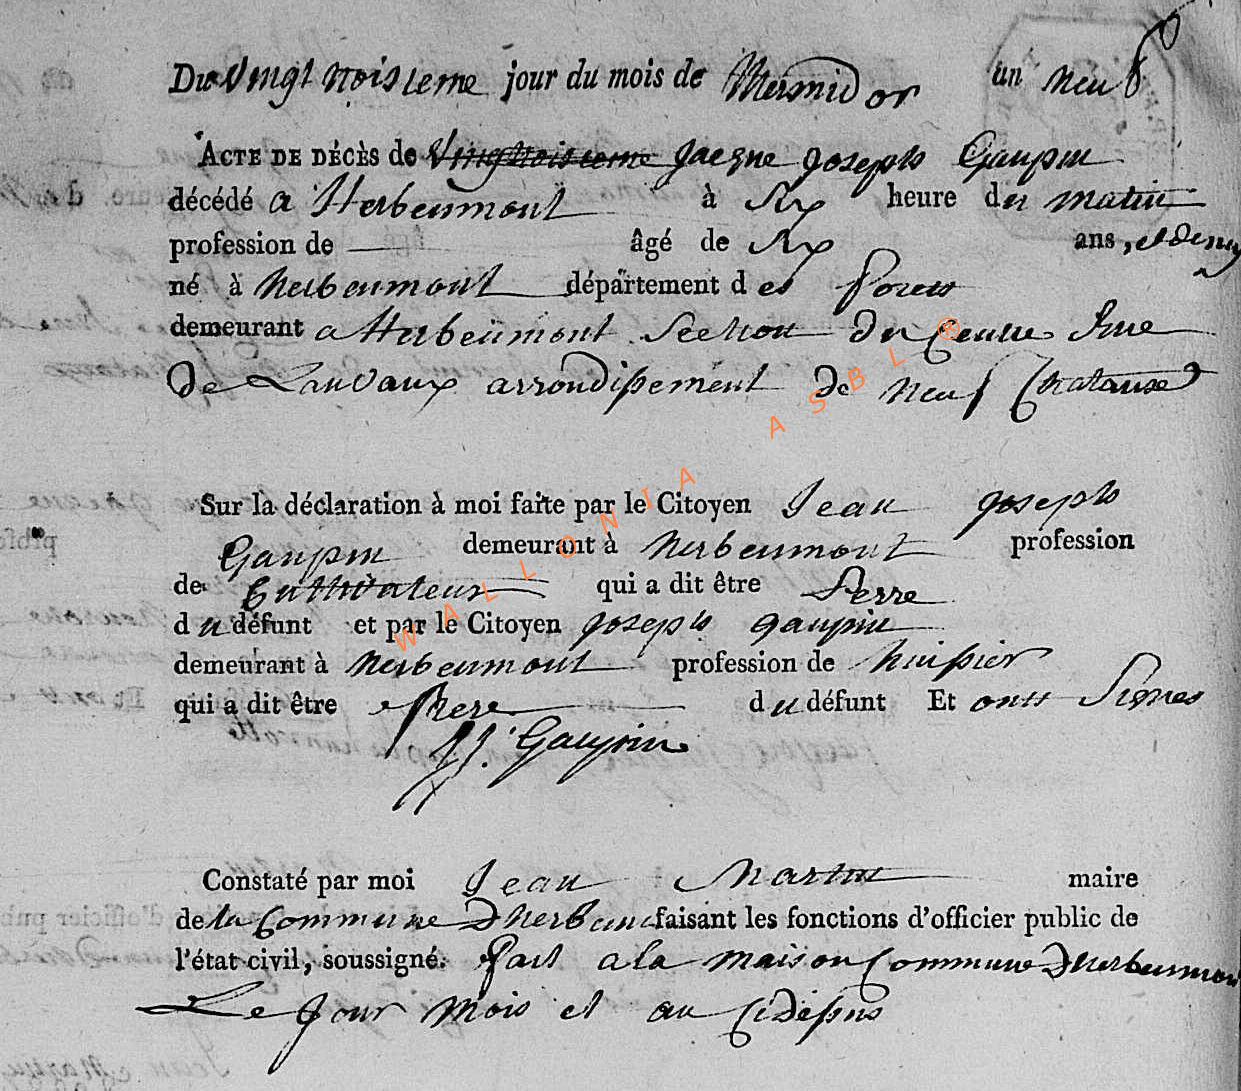 Du vingt troisieme jour du mois de thermidor an neuf
ACTE DE DÉCÈS de vingtroisieme Jacque Joseph Gaupin
décédé a Herbeumont à six heure du matin
profession de âgé de six ans, et demy
né à herbeumont département des forets
demeurant a Herbeumont Section du Centre
de Lauvaux arrondissement de neuf Chataux
Sur la déclaration à moi faite par le Citoyen Jean joseph
Gaupin demeurant à herbeumont profession
de Cultivateur qui a dit être Perre
du défunt et par le Citoyen joseph gaupin
demeurant à herbeumont profession de huissier
qui a dit être frere du défunt Et ont Signes
JJ. Gaupin
Constaté par moi Jean Martin maire
de la Commune Dherbeum faisant les fonctions d'officier public de
l'état civil, soussigné. fait a la maison Commune Dherbeumon
Le Jour mois et an Cidesus
WALLONIA ASBL ®